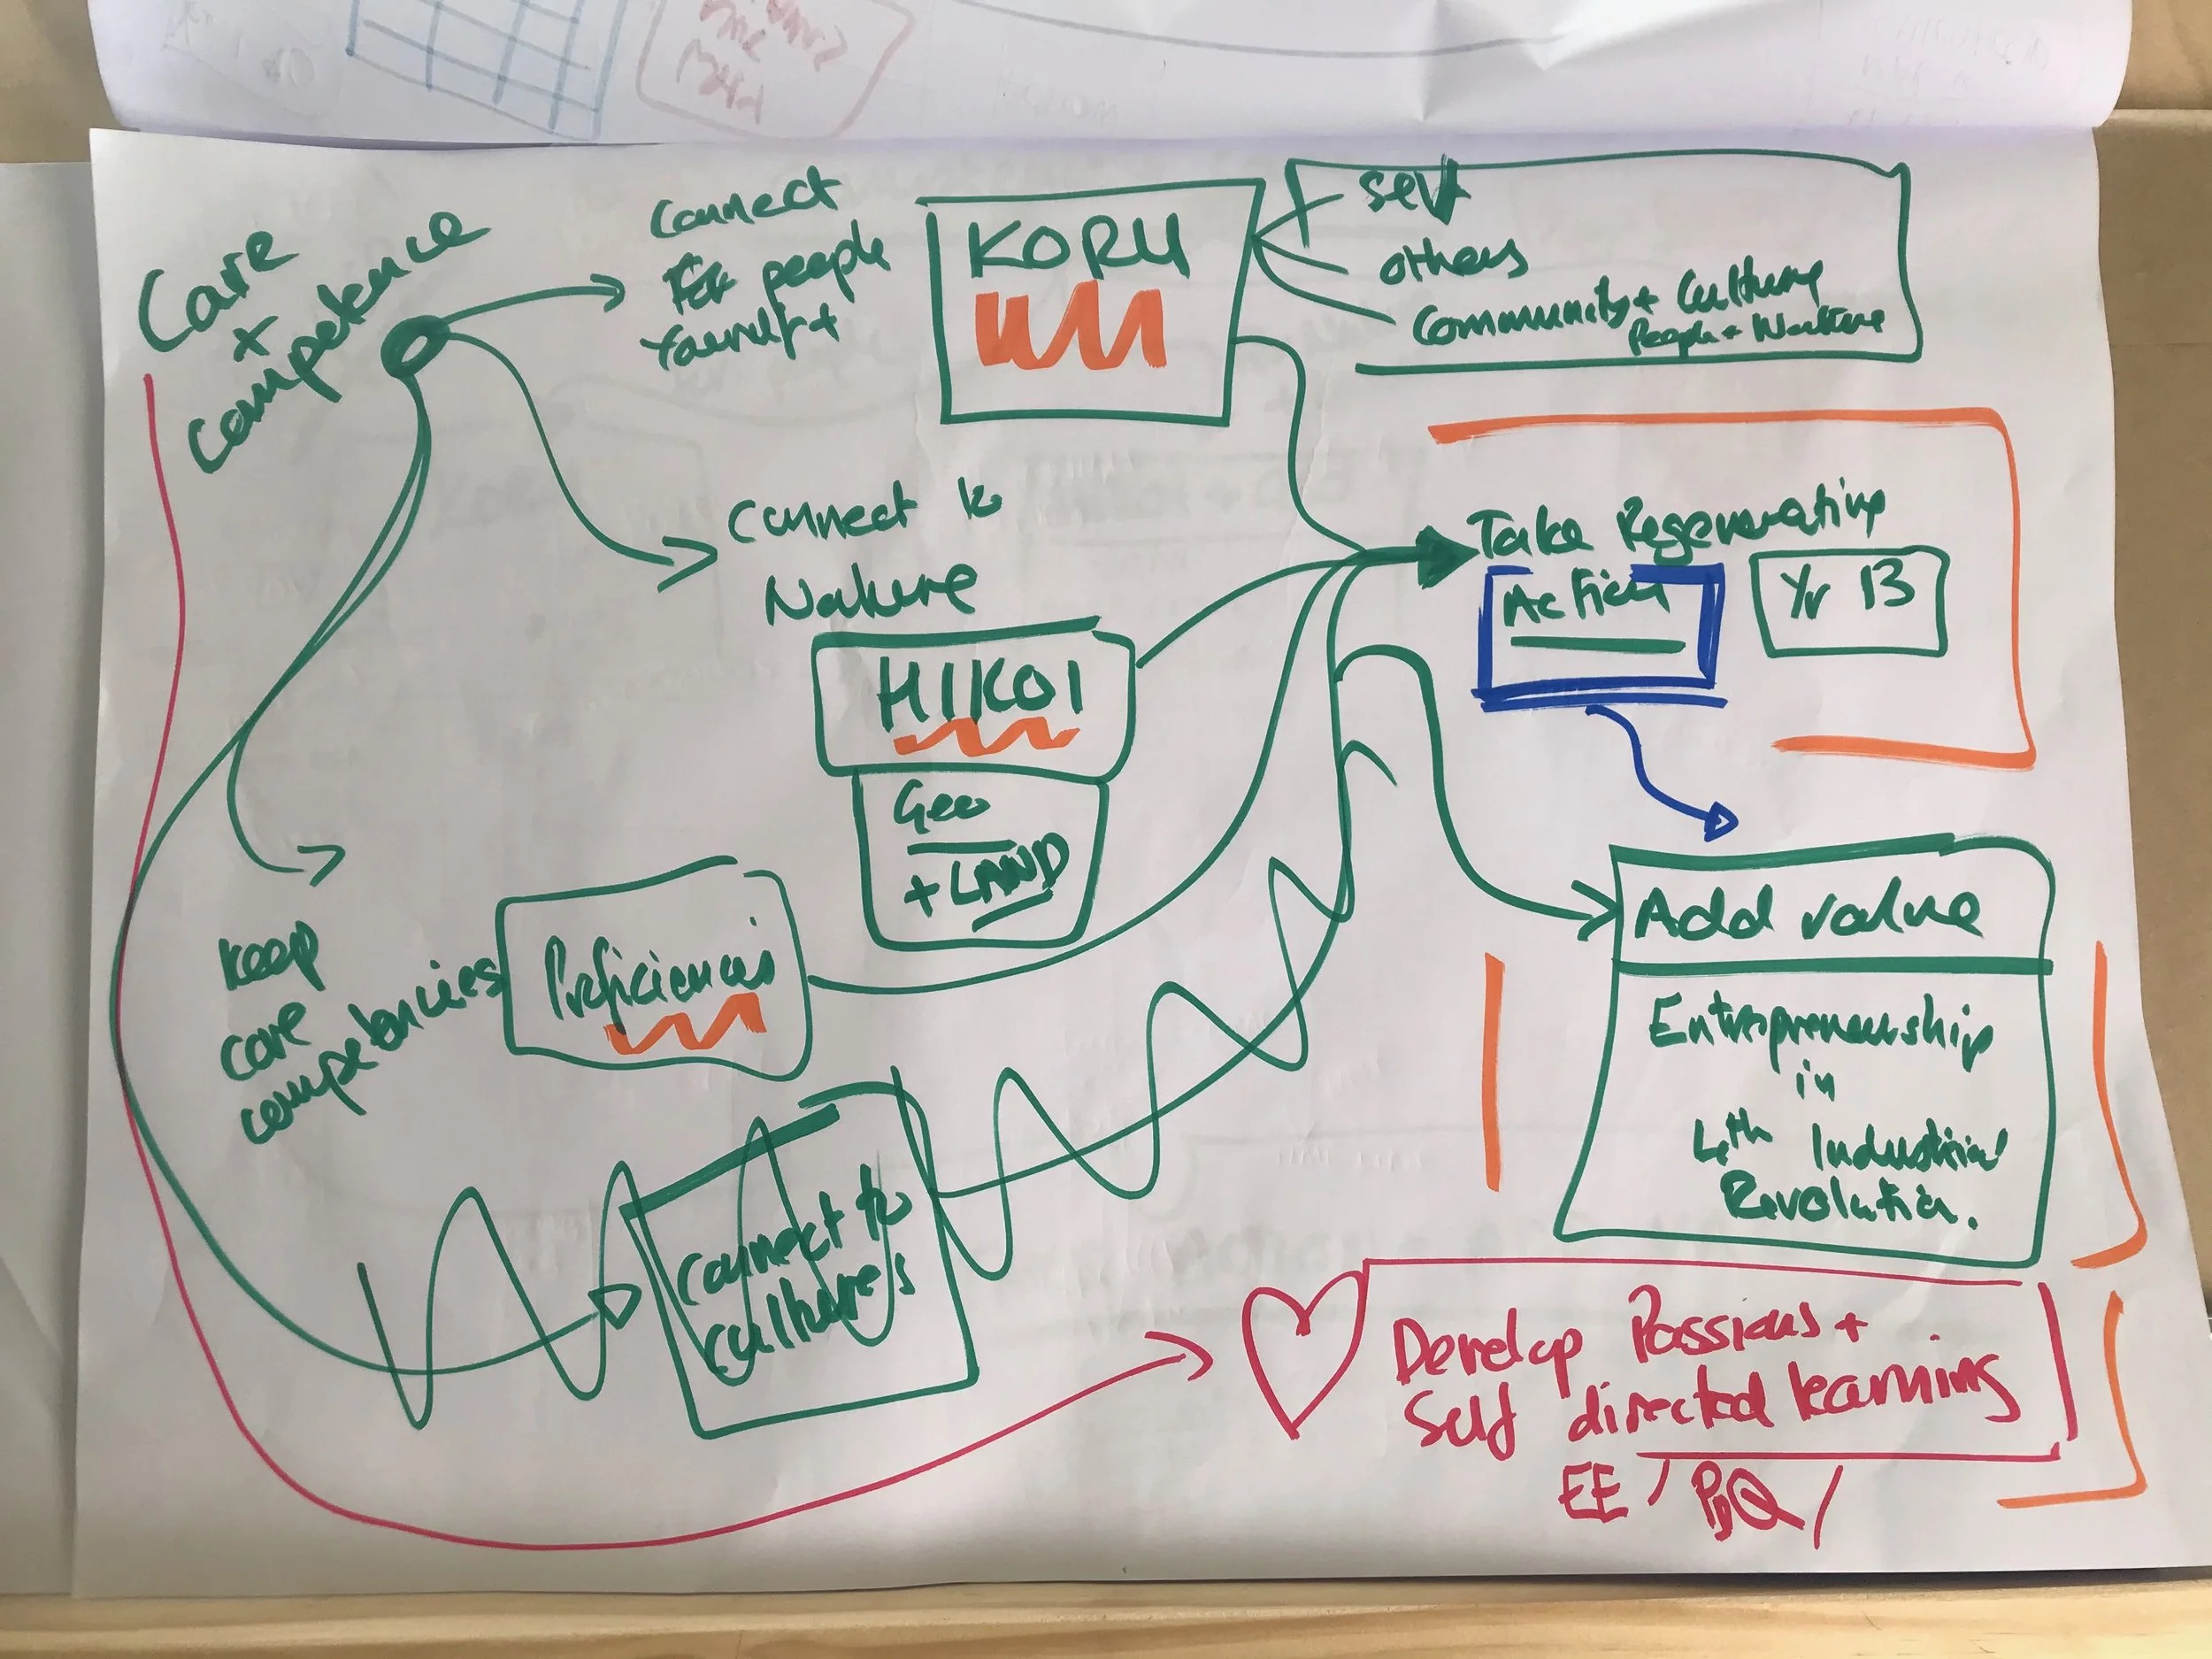 Care
x
competence
Connect
people
KORU
self
others
Community + Culture
People +
Connect to
Nature
HIKOI
Geo
+ LAND
Take Regenerative
Action
Yr 13
keep
core
competencies
Proficiencies
connect to
cultures
Add value
Entrepreneurship
in
4th Industrial
Revolution.
Develop Passions +
Self directed learning
EE /